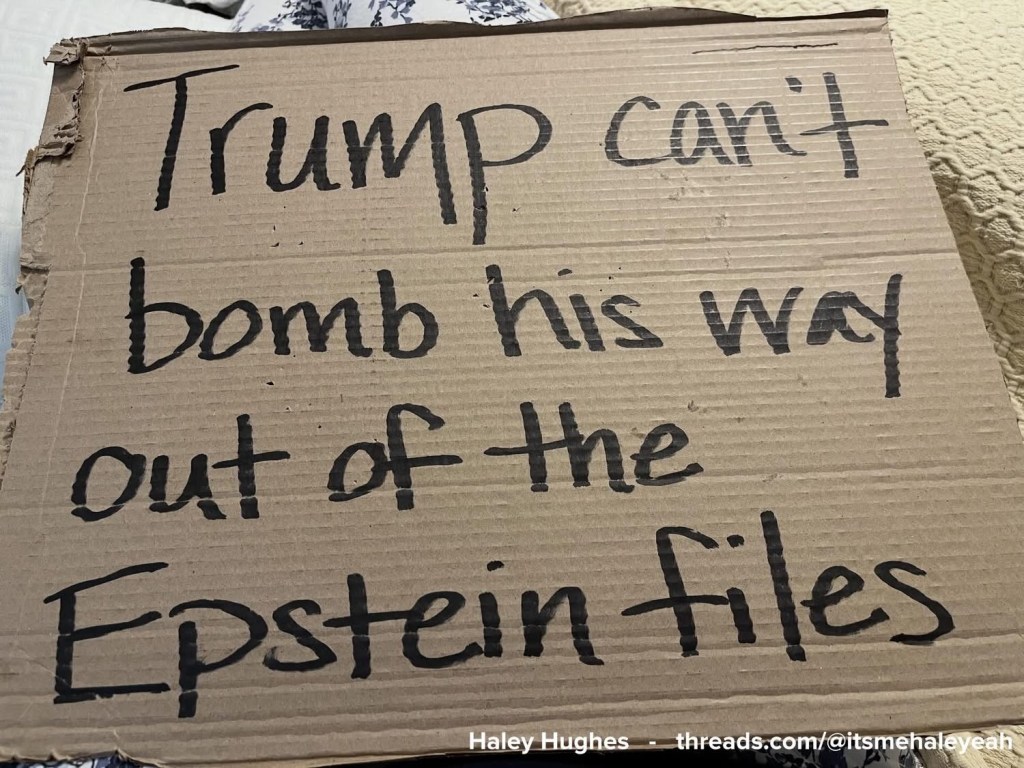 Trump can't
bomb his way
out of the
Epstein files
Haley Hughes - threads.com/@itsmehaleyeah